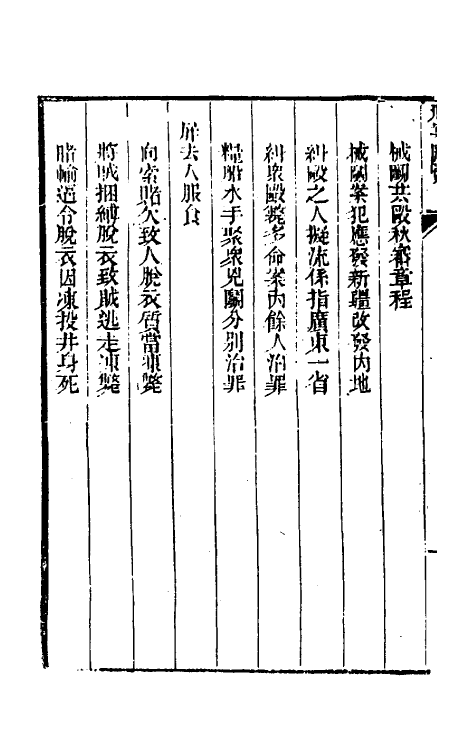 械鬬共毆秋審章程
械鬬案犯應發新疆改發內地
糾毆之人擬流係指廣東一省
糾衆毆斃多命案內餘人治罪
糧船水手聚衆兇鬬分別治罪
屏去人服食
向索賭欠致人脫衣質當凍斃
將賊捆縛脫衣致賊逃走凍斃
賭輸逼令脫衣因凍投井身死